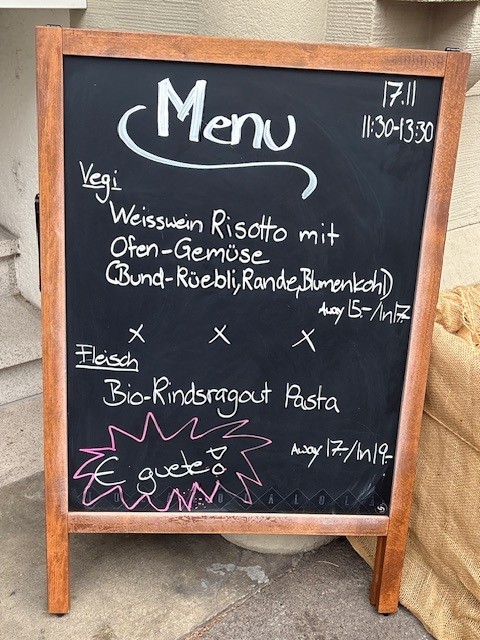 Menu
17.11
11:30-13:30
Vegi
Weisswein Risotto mit
Ofen-Gemüse
(Bund-Rüebli, Rande, Blumenkohl)
Away 15.-/In 17.-
x x x
Fleisch
Bio-Rindsragout Pasta
Away 17.-/In 19.-
E guete!